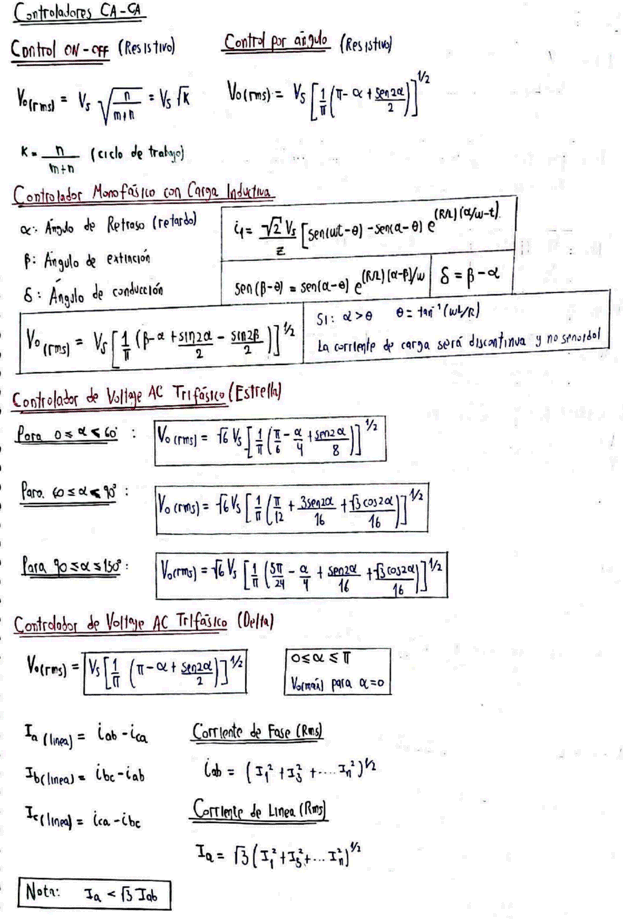 Controladores CA-CA
Control ON-OFF (Resistivo)
Control por ángulo (Resistivo)
Vo(rms) = Vs √(n/(m+n)) = Vs √K
Vo(rms) = Vs [1/π (π - α + sen2α/2)]^1/2
K = n/(m+n) (ciclo de trabajo)
Controlador Monofásico con Carga Inductiva
α: Ángulo de Retraso (retardo)
β: Ángulo de extinción
δ: Ángulo de conducción
i₁ = √2 Vs/Z [sen(ωt-θ) - sen(α-θ) e^(R/L)(α/ω-t)]
sen(β-θ) = sen(α-θ) e^(R/L)(α-β)/ω
δ = β - α
Vo(rms) = Vs [1/π (β-α + sin2α/2 - sin2β/2)]^1/2
Si: α > θ θ = tan⁻¹(ωL/R)
La corriente de carga será discontinua y no senoidal
Controlador de Voltaje AC Trifásico (Estrella)
Para 0 ≤ α < 60°:
Vo(rms) = √6 Vs [1/π (π/6 - α/4 + sen2α/8)]^1/2
Para 60 ≤ α < 90°:
Vo(rms) = √6 Vs [1/π (π/12 + 3sen2α/16 + √3cos2α/16)]^1/2
Para 90 ≤ α ≤ 150°:
Vo(rms) = √6 Vs [1/π (5π/24 - α/4 + sen2α/16 + √3cos2α/16)]^1/2
Controlador de Voltaje AC Trifásico (Delta)
Vo(rms) = Vs [1/π (π - α + sen2α/2)]^1/2
0 ≤ α ≤ π
Vo(máx) para α=0
Ia(linea) = iab - ica
Ib(linea) = ibc - iab
Ic(linea) = ica - ibc
Corriente de Fase (Rms)
iab = (I₁² + I₃² + .... Iₙ²)^1/2
Corriente de Linea (Rms)
Ia = √3 (I₁² + I₅² + ... Iₙ²)^1/2
Nota: Ia < √3 Iab